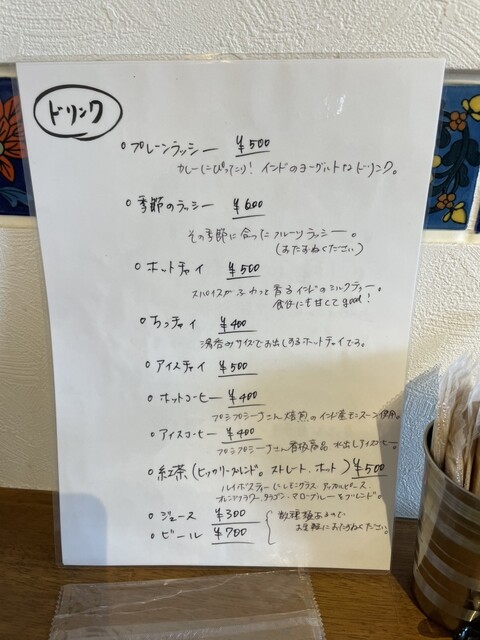 ドリンク
○ プレーンラッシー ¥500
カレーにぴったり! インドのヨーグルトなドリンク。
○ 季節のラッシー ¥600
その季節に合ったフルーツラッシー。
(おたずねください)
○ ホットチャイ ¥500
スパイスがふわっと香るインドのミルクティー。
食後にも甘くてgood!
○ ちっチャイ ¥400
湯呑のサイズでお出しするホットチャイです。
○ アイスチャイ ¥500
○ ホットコーヒー ¥400
プシプシーナさん焙煎のインド産モンスーン使用。
○ アイスコーヒー ¥400
プシプシーナさん看板商品 水出しアイスコーヒー。
○ 紅茶 (ビックリーブレンド。ストレート、ホット) ¥500
ルイボスティーにレモングラス、アップルピース、
オレンジフラワー、タラゴン、マローブルーをブレンド。
○ ジュース ¥300
○ ビール ¥700
数種類あるので
お気軽におたずねください。